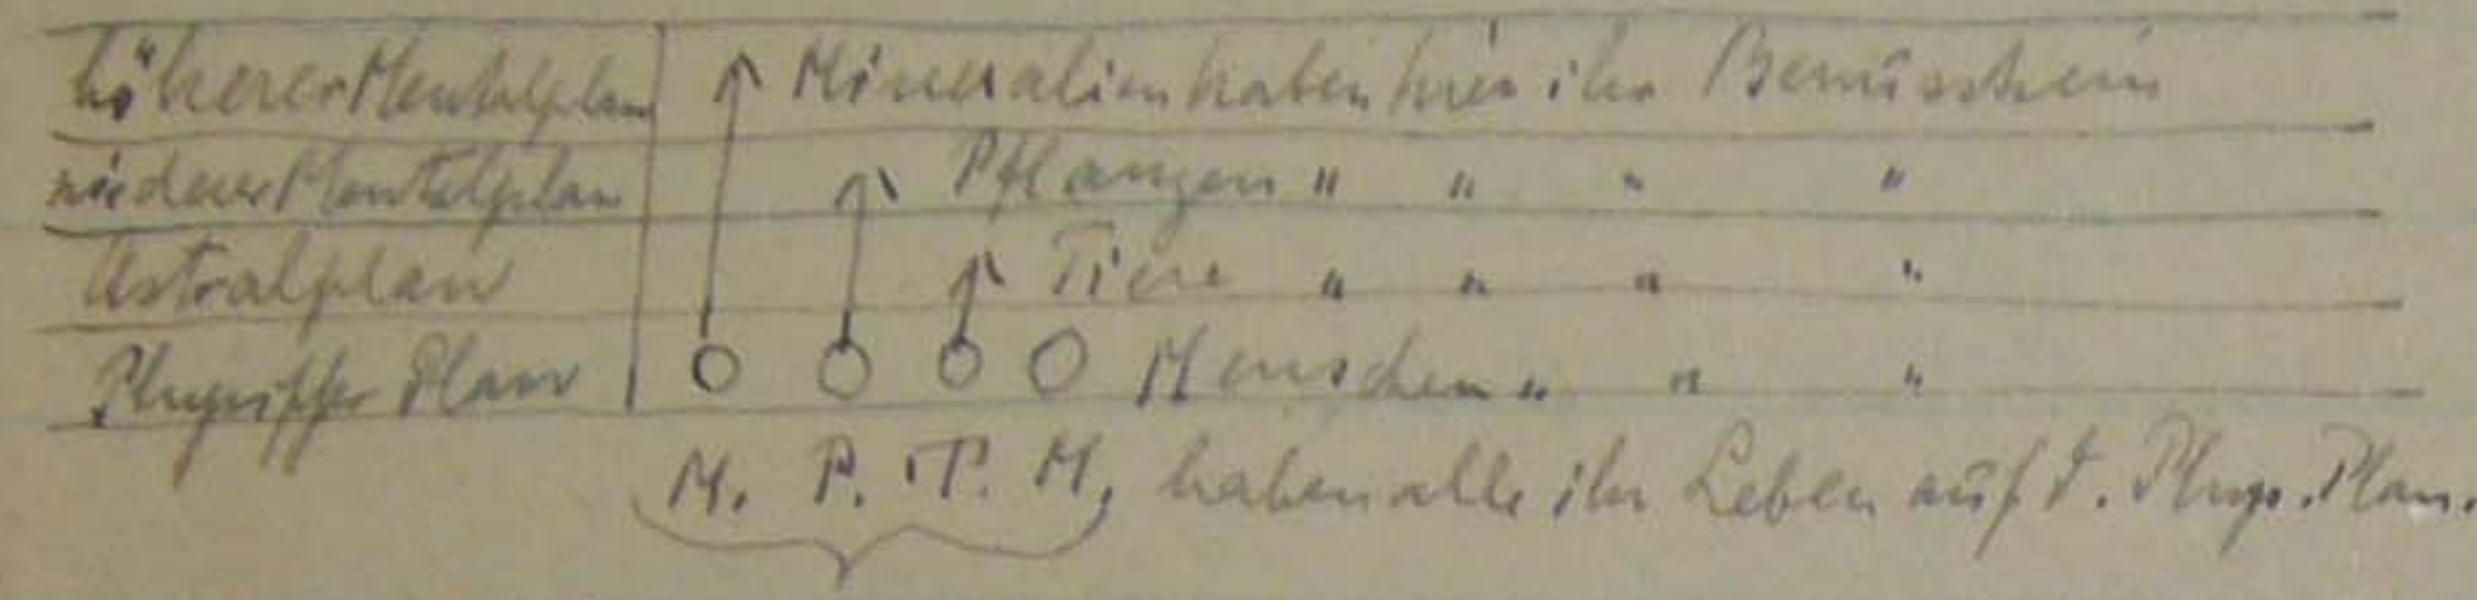 höherer Mentalplan Mineralien haben hier ihr Bewusstsein
niederer Mentalplan Pflanzen " " " "
Astralplan Tiere " " " "
Physischer Plan Menschen " " "
M. P. T. M. haben alle ihr Leben auf d. Phys. Plan.